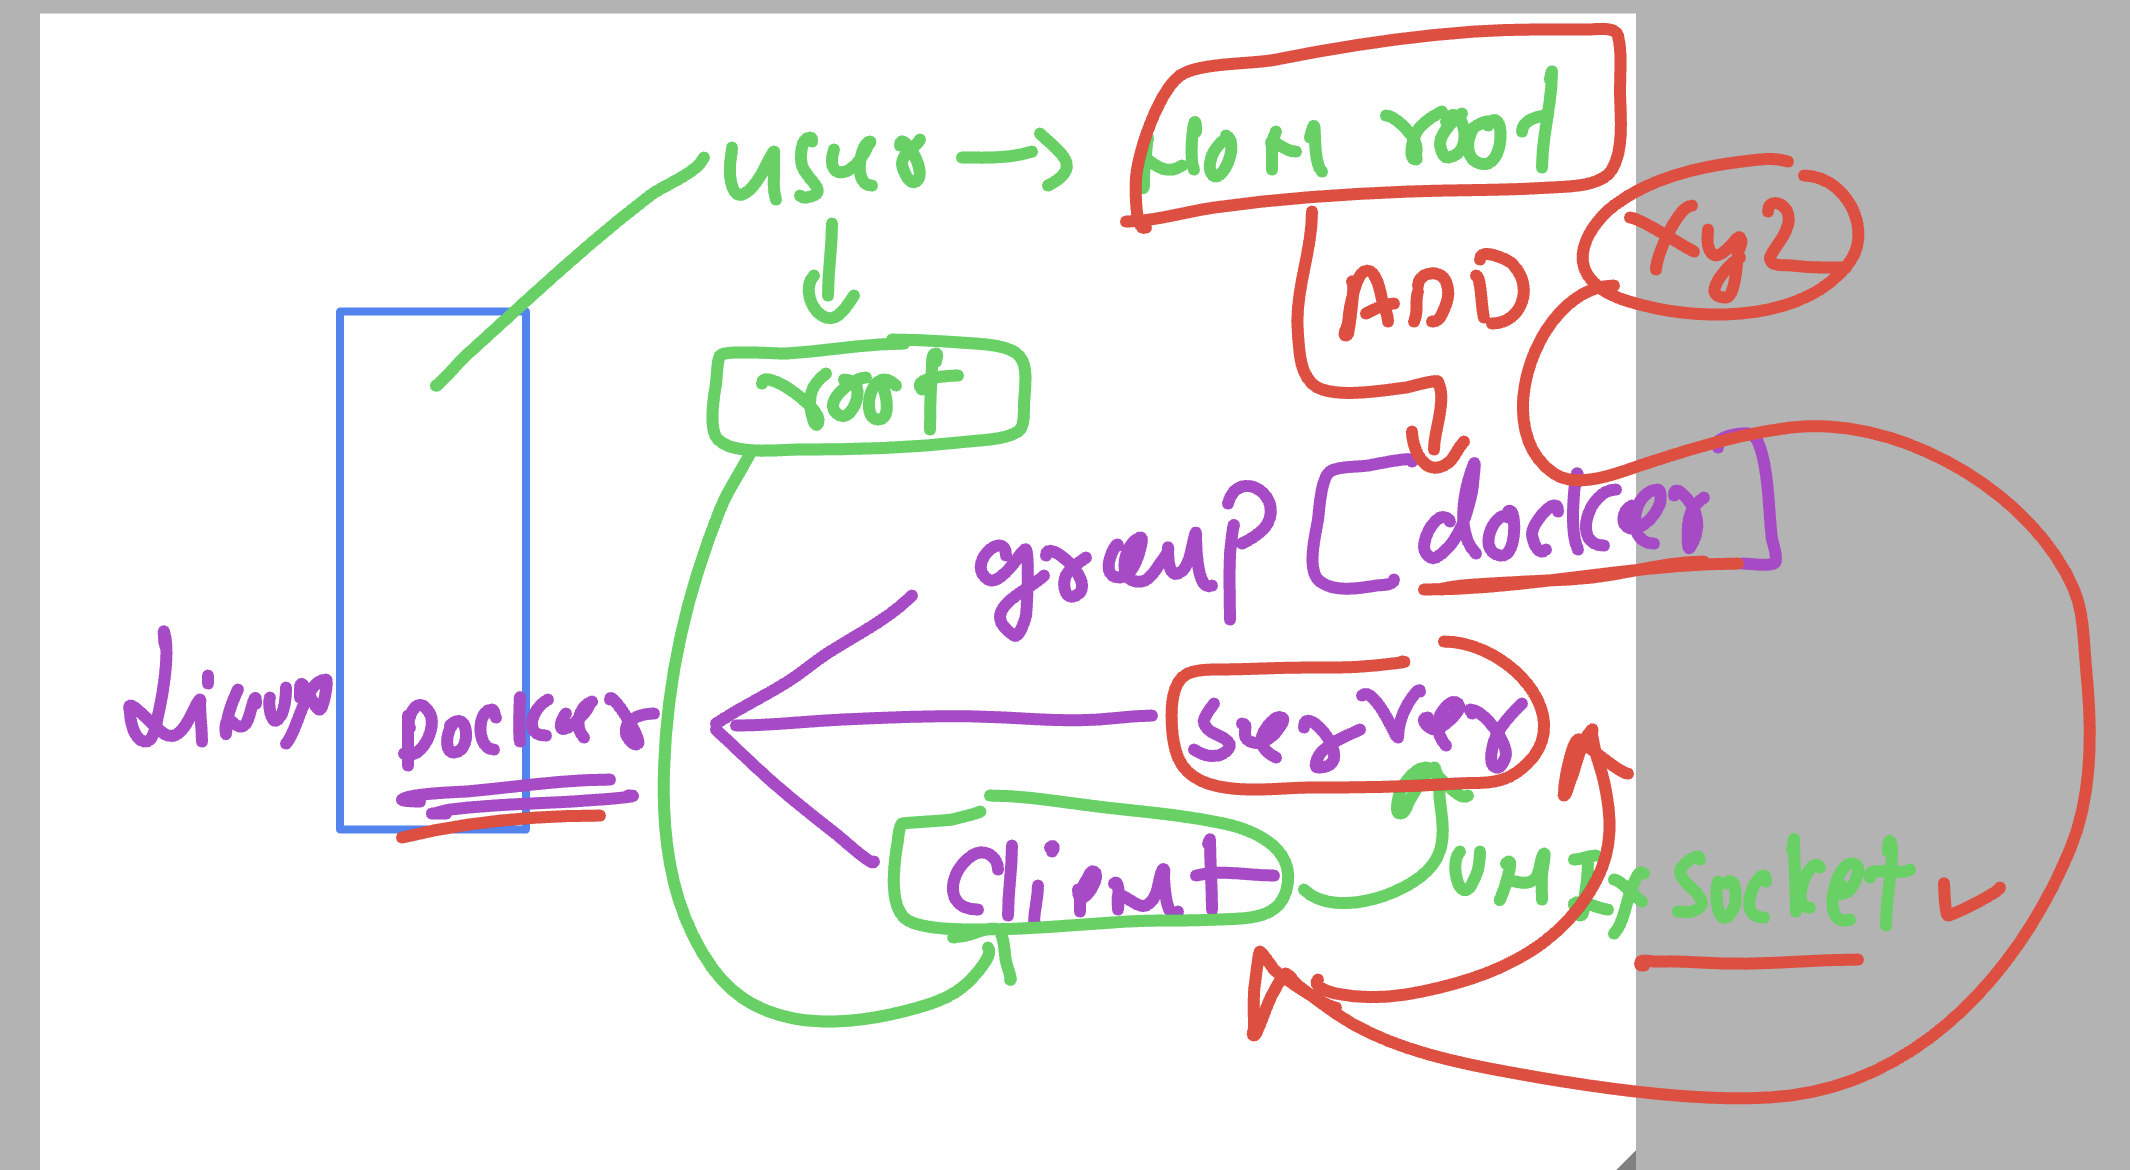 user → non root
xyz
ADD
root
group docker
Linux
Docker
server
client
UNIX socket